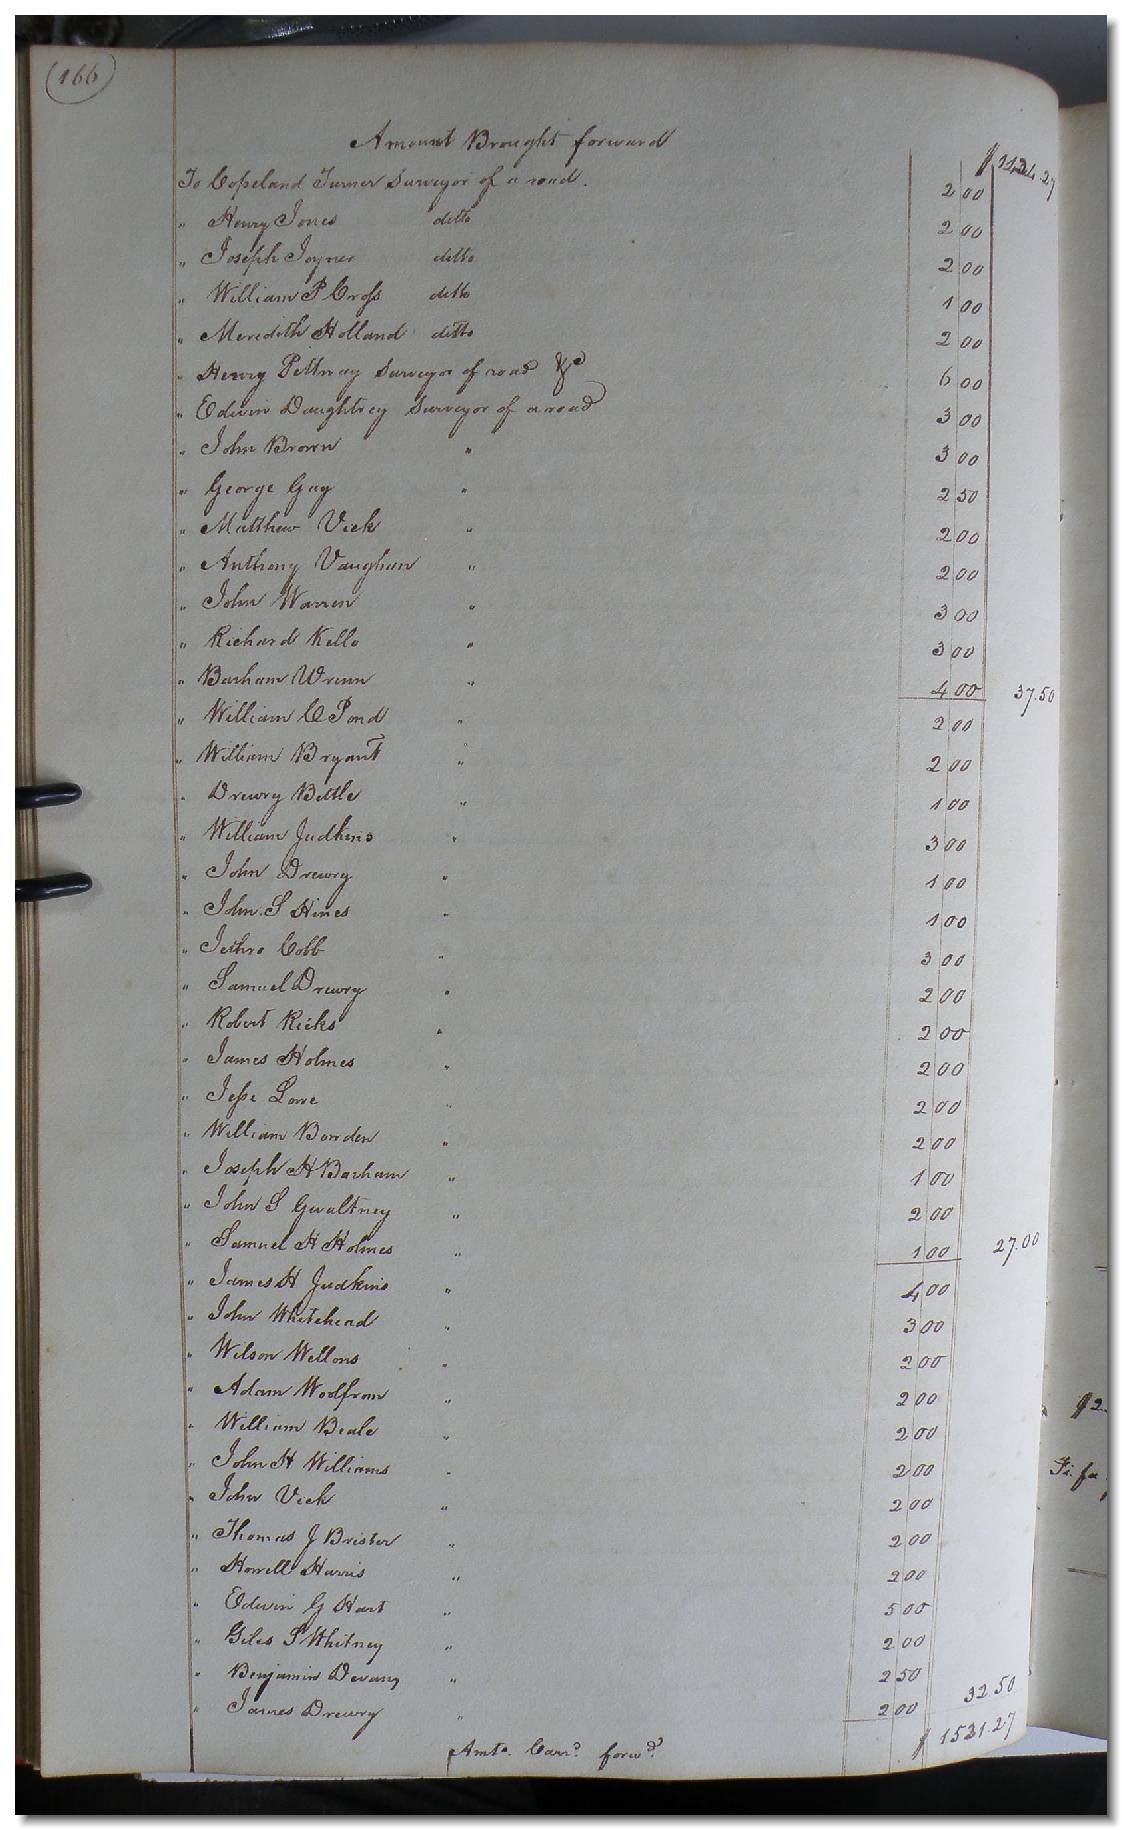 166
Amount Brought forward $11 .27
To Copeland Turner Surveyor of a road. 2 00
" Henry Jones ditto 2 00
" Joseph Joyner ditto 2 00
" William P Cross ditto 1 00
" Meredith Holland ditto 2 00
" Henry Pettway Surveyor of road &c 6 00
" Edwin Daughtrey Surveyor of a road 3 00
" John Brown " 3 00
" George Gay " 2 50
" Matthew Vick " 2 00
" Anthony Vaughan " 2 00
" John Warren " 3 00
" Richard Kello " 3 00
" Barham Wrenn " 4 00 37.50
" William C Pond " 2 00
" William Bryant " 2 00
" Drewry Bittle " 1 00
" William Judkins " 3 00
" John Drewry " 1 00
" John S Hines " 1 00
" Jethro Cobb " 3 00
" Samuel Drewry " 2 00
" Robert Ricks " 2 00
" James Holmes " 2 00
" Jesse Lowe " 2 00
" William Bowden " 2 00
" Joseph H Barham " 1 00
" John S Gwaltney " 2 00
" Samuel H Holmes " 1 00 27.00
" James H Judkins " 4 00
" John Whitehead " 3 00
" Wilson Wellons " 2 00
" Adam Woolfrom " 2 00
" William Beale " 2 00
" John H Williams " 2 00
" John Vick " 2 00
" Thomas J Brister " 2 00
" Howell Harris " 2 00
" Edwin G Hart " 5 00
" Giles S Whitney " 2 00
" Benjamin Devany " 2 50
" James Drewry " 2 00 32.50
Amt. Carrd. forwd. $1531.27
$2
Fi. fa